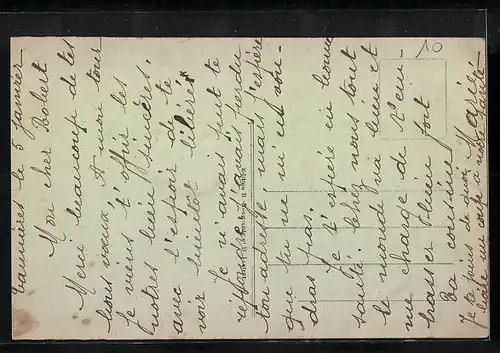 Tannières le 5 janvier
Mon cher Robert
Merci beaucoup de tes
bons voeux. A mon tour
je viens t'offrir les
nôtres bien sincères,
avec l'espoir de te
voir bientôt libéré
Je n'avais put te
réponse j'avais perdu
ton adresse mais j'espère
que tu ne m'en vou-
dras pas.
Je t'espère en bonne
santé. Chez nous tout
le monde va bien et
me charge de t'em-
brasser bien fort
Ta cousine Maria
Je te prins de
boire un coup à notre santé
10